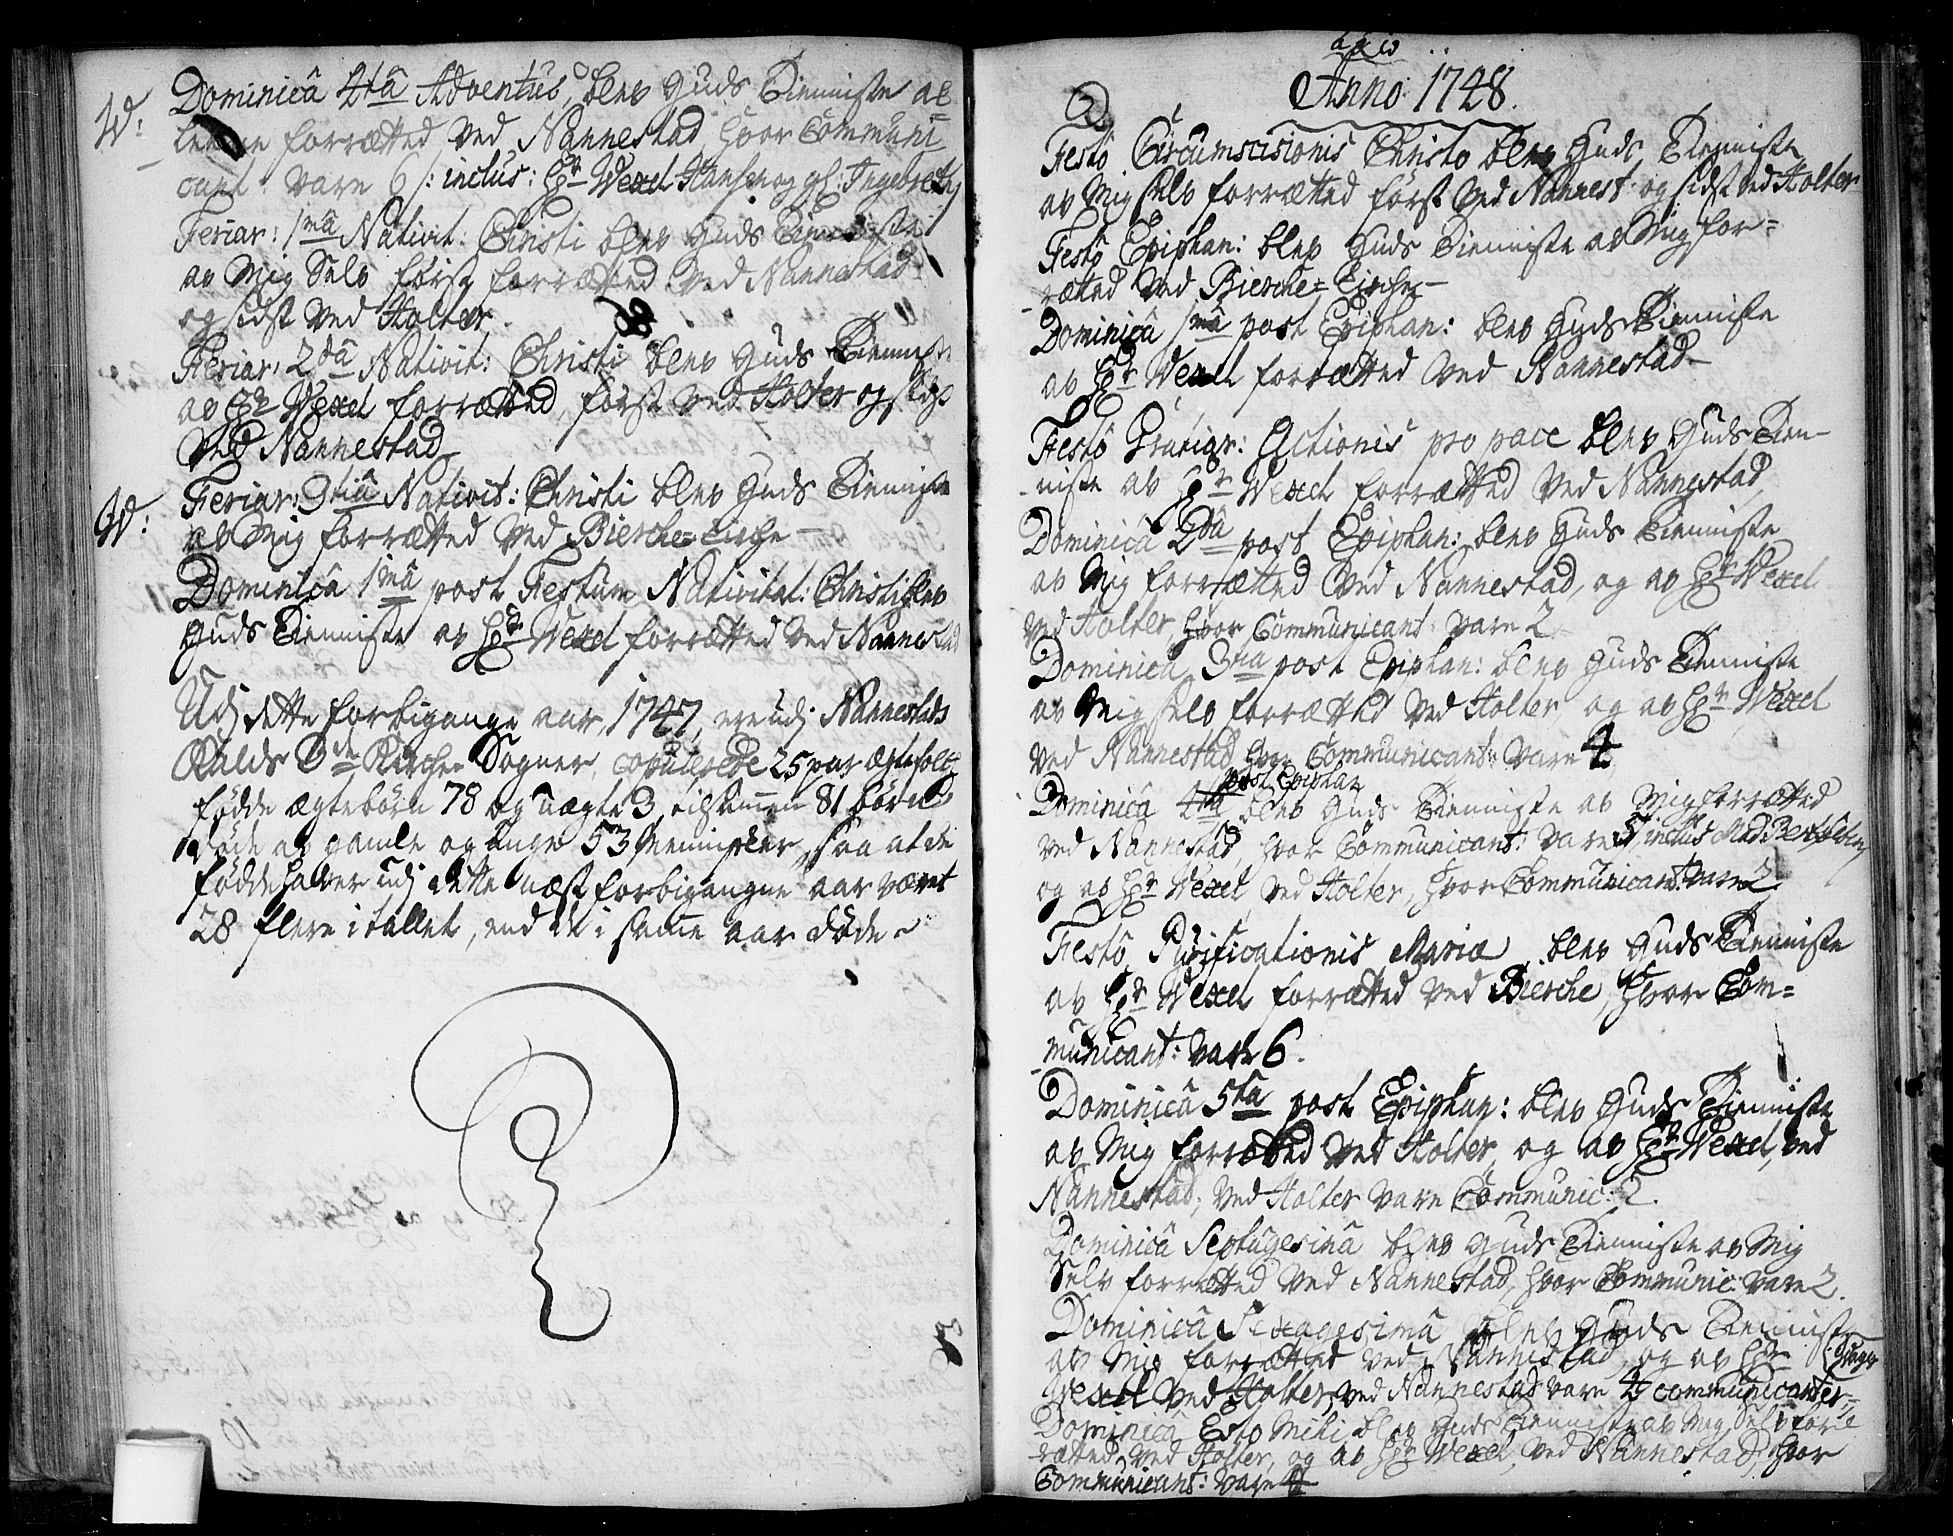 W: Dominicâ 4tâ Adventus, blev Guds Tienniste al=
leene forrætted ved Nannestad, hvor Communi
cant: vare 6 /: inclus: Hr Wexel Hansen og gl: Ingebreth
Feriar: 1mâ Nativit: Christi blev Guds Tienniste
av Mig Selv først forrætted ved Nannestad
og sidst ved Holter.
Feriar: 2dâ Nativit: Christi blev Guds Tienniste
av Hr Wexel forrætted, først ved Holter og sidst
ved Nannestad
W: Feriar: 3tiâ Nativit: Christi blev Guds Tienniste
av Mig forrætted ved Bierche=Kirche —
Dominicâ 1mâ post Festum Nativitat: Christi blev
Guds Tienniste av Hr Wexel forrætted ved Nannestad
Udj dette forbigangne aar, 1747, ere udj Nannestads
Kalds 3de Kirche-Sogner, copulerede 25 par ægtefolk,
fødde ægtebørn 78 og uægte 3, tilsammen 81 børn
døde av gamle og unge 53 Mennisker, saa at de
fødde haver udj dette næst forbigangne aar været
28 flere i tallet, end de i samme aar døde -
Anno 1748.
Festô Circumscisionis Christo blev Guds Tienniste
av Mig selv forrætted først ved Nannest: og sidst ved Holter
Festô Epiphan: blev Guds Tienniste av Mig for=
rætted ved Bierche=Kirche —
Dominicâ 1mâ post Epiphan: blev Guds Tienniste
av Hr Wexel forrætted ved Nannestad —
Festô Gratiar: Actionis pro pace blev Guds Tien-
niste av Hr Wexel forrætted ved Nannestad
Dominicâ 2dâ post Epiphan: blev Guds Tienniste
av Mig forrætted ved Nannestad, og av Hr Wexel
ved Holter, hvor Communicant: vare 2
Dominicâ 3tia post Epiphan: blev Guds Tienniste
av Mig selv forrætted ved Holter, og av Hr Wexel
ved Nannestad, hvor Communicant: vare 4
post Epiphan
Dominicâ 4tâ blev Guds Tienniste av Mig forrætted
ved Nannestad, hvor Communicant: vare 5, inclus Mad
og av Hr Wexel ved Holter, hvor Communicant: vare 2
Festô Purificationis Mariæ, blev Guds Tienniste
av Hr Wexel forrætted ved Bierche, hvor Com=
municant: vare 6.
Dominicâ 5tâ post Epiphan: blev Guds Tienniste
av Mig forrætted ved Holter, og av Hr Wexel, ved
Nannestad; ved Holter vare Communic: 2.
Dominicâ Septugesimâ blev Guds Tienniste av Mig
Selv forrætted ved Nannestad, hvor Communic: vare 2.
Dominicâ Sexagesimâ blev Guds Tienniste
av Mig forrætted ved Nannestad, og av Hr
Wexel ved Holter, ved Nannestad vare 4 communicanter
Dominicâ Esto Mihi blev Guds Tienniste av Mig Selv for=
rætted ved Holter, og av Hr Wexel, ved Nannestad, hvor
Communicant: vare 4